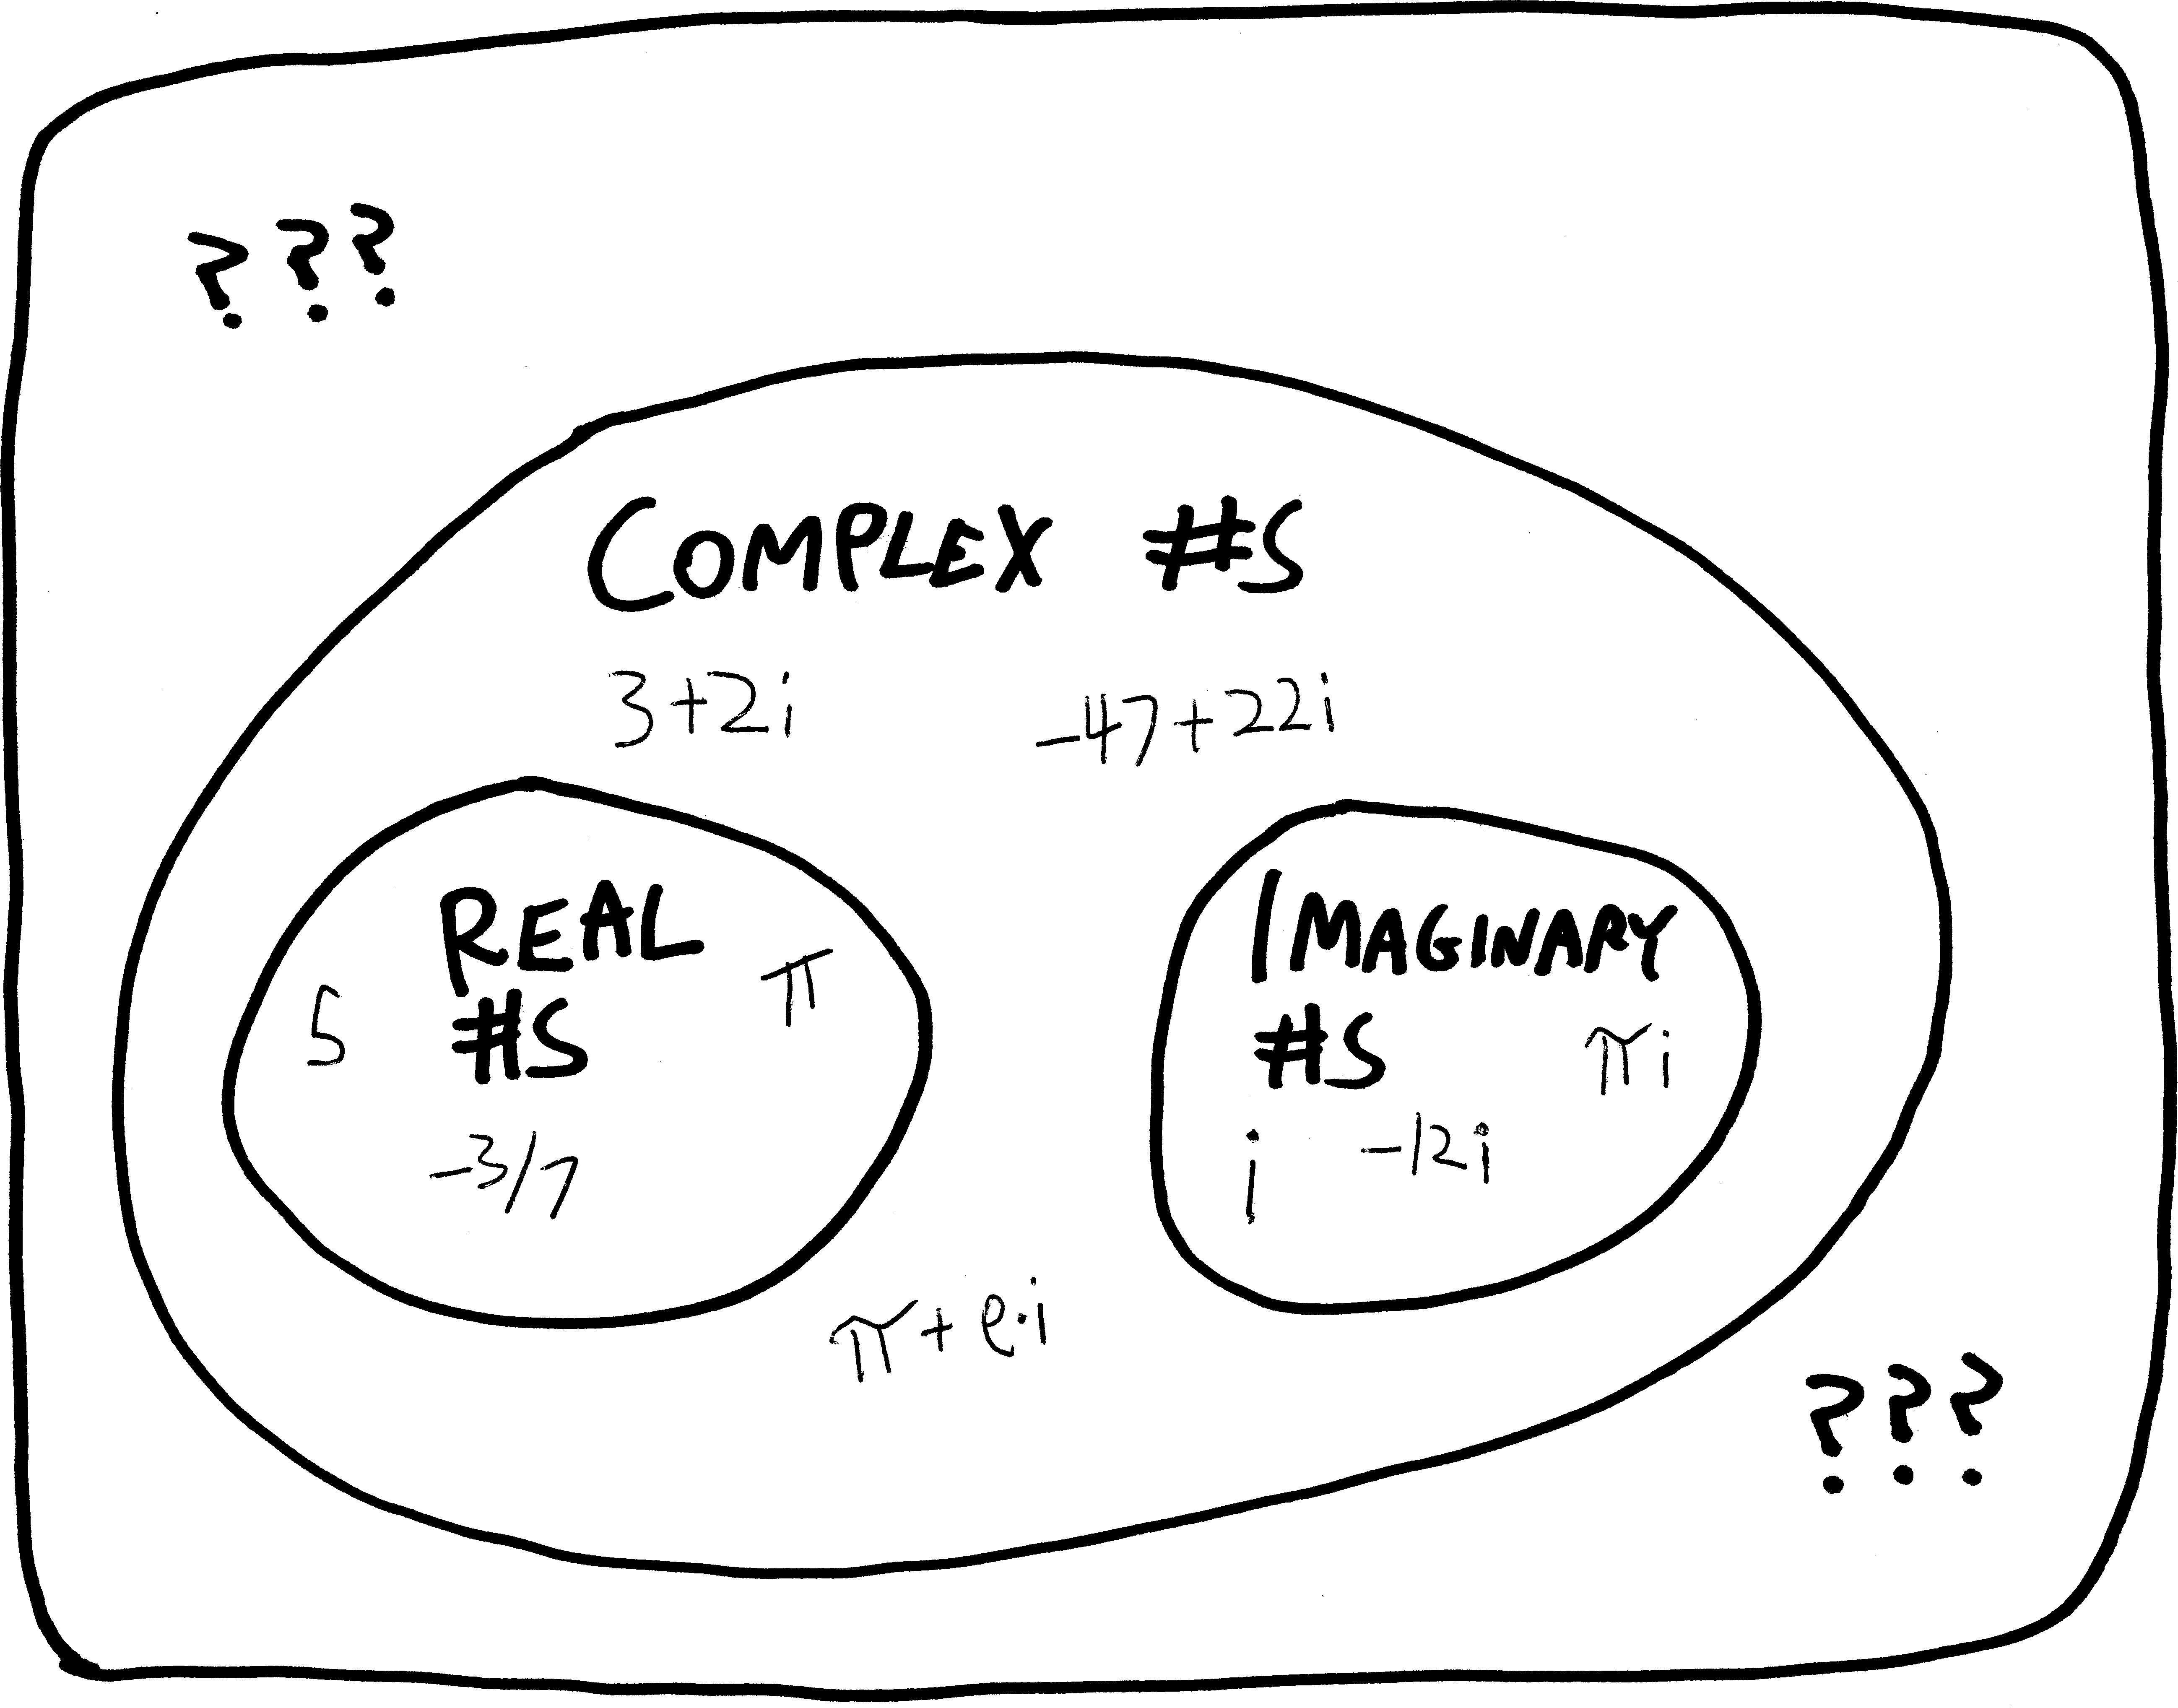 ???
COMPLEX #S
3+2i
-47+22i
REAL
#S
5
π
-3/7
IMAGINARY
#S
πi
i
-12i
π+e·i
???